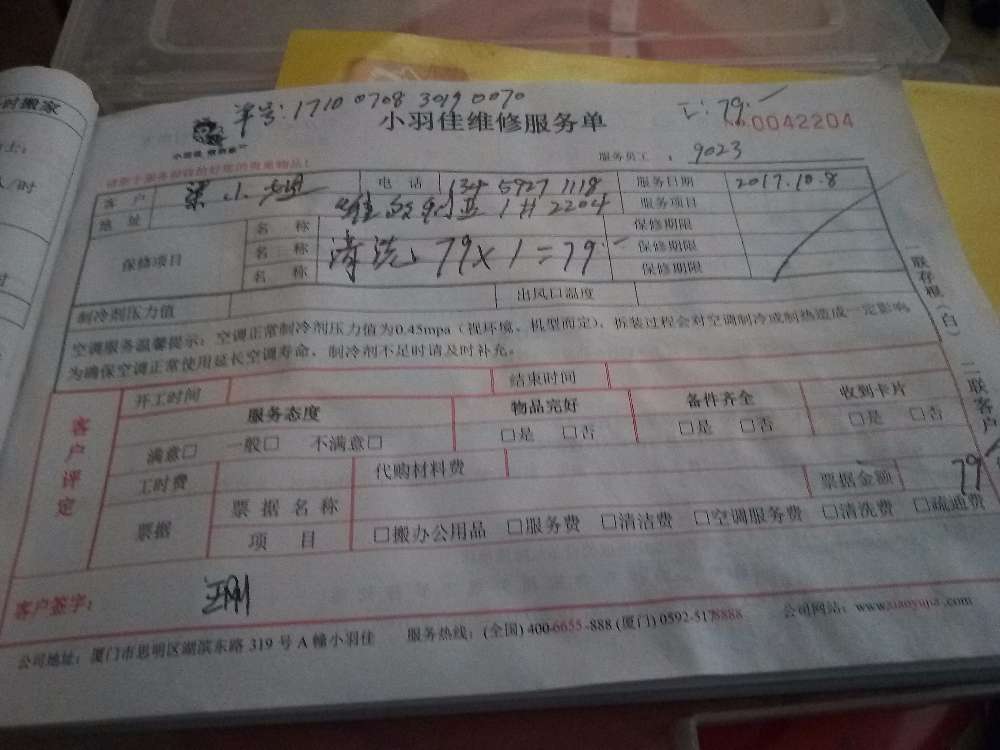 单号: 1710 0708 3019 0070
工: 79.—
小羽佳维修服务单
No 0042204
服务员工 : 9023
客 户 梁小姐 电 话 134 5927 1118 服务日期 2017.10.8
地 址 1# 2204 服务项目
保修项目 名 称 保修期限
名 称 清洗 79×1=79.— 保修期限
名 称 保修期限
制冷剂压力值 出风口温度
空调服务温馨提示: 空调正常制冷剂压力值为0.45mpa (视环境、机型而定), 拆装过程会对空调制冷或制热造成一定影响
为确保空调正常使用延长空调寿命, 制冷剂不足时请及时补充。
客户评定
开工时间 结束时间
服务态度 物品完好 备件齐全 收到卡片
满意□ 一般□ 不满意□ □是 □否 □是 □否 □是 □否
工时费 代购材料费
票据 票据名称 票据金额 79
项 目 □搬办公用品 □服务费 □清洁费 □空调服务费 □清洗费 □疏通费
客户签字:
公司地址: 厦门市思明区湖滨东路 319 号 A 幢小羽佳 服务热线: (全国) 400-6655-888 (厦门) 0592-5178888 公司网站: www.xiaoyujia.com
一联存根 (白) 二联客户
时搬家